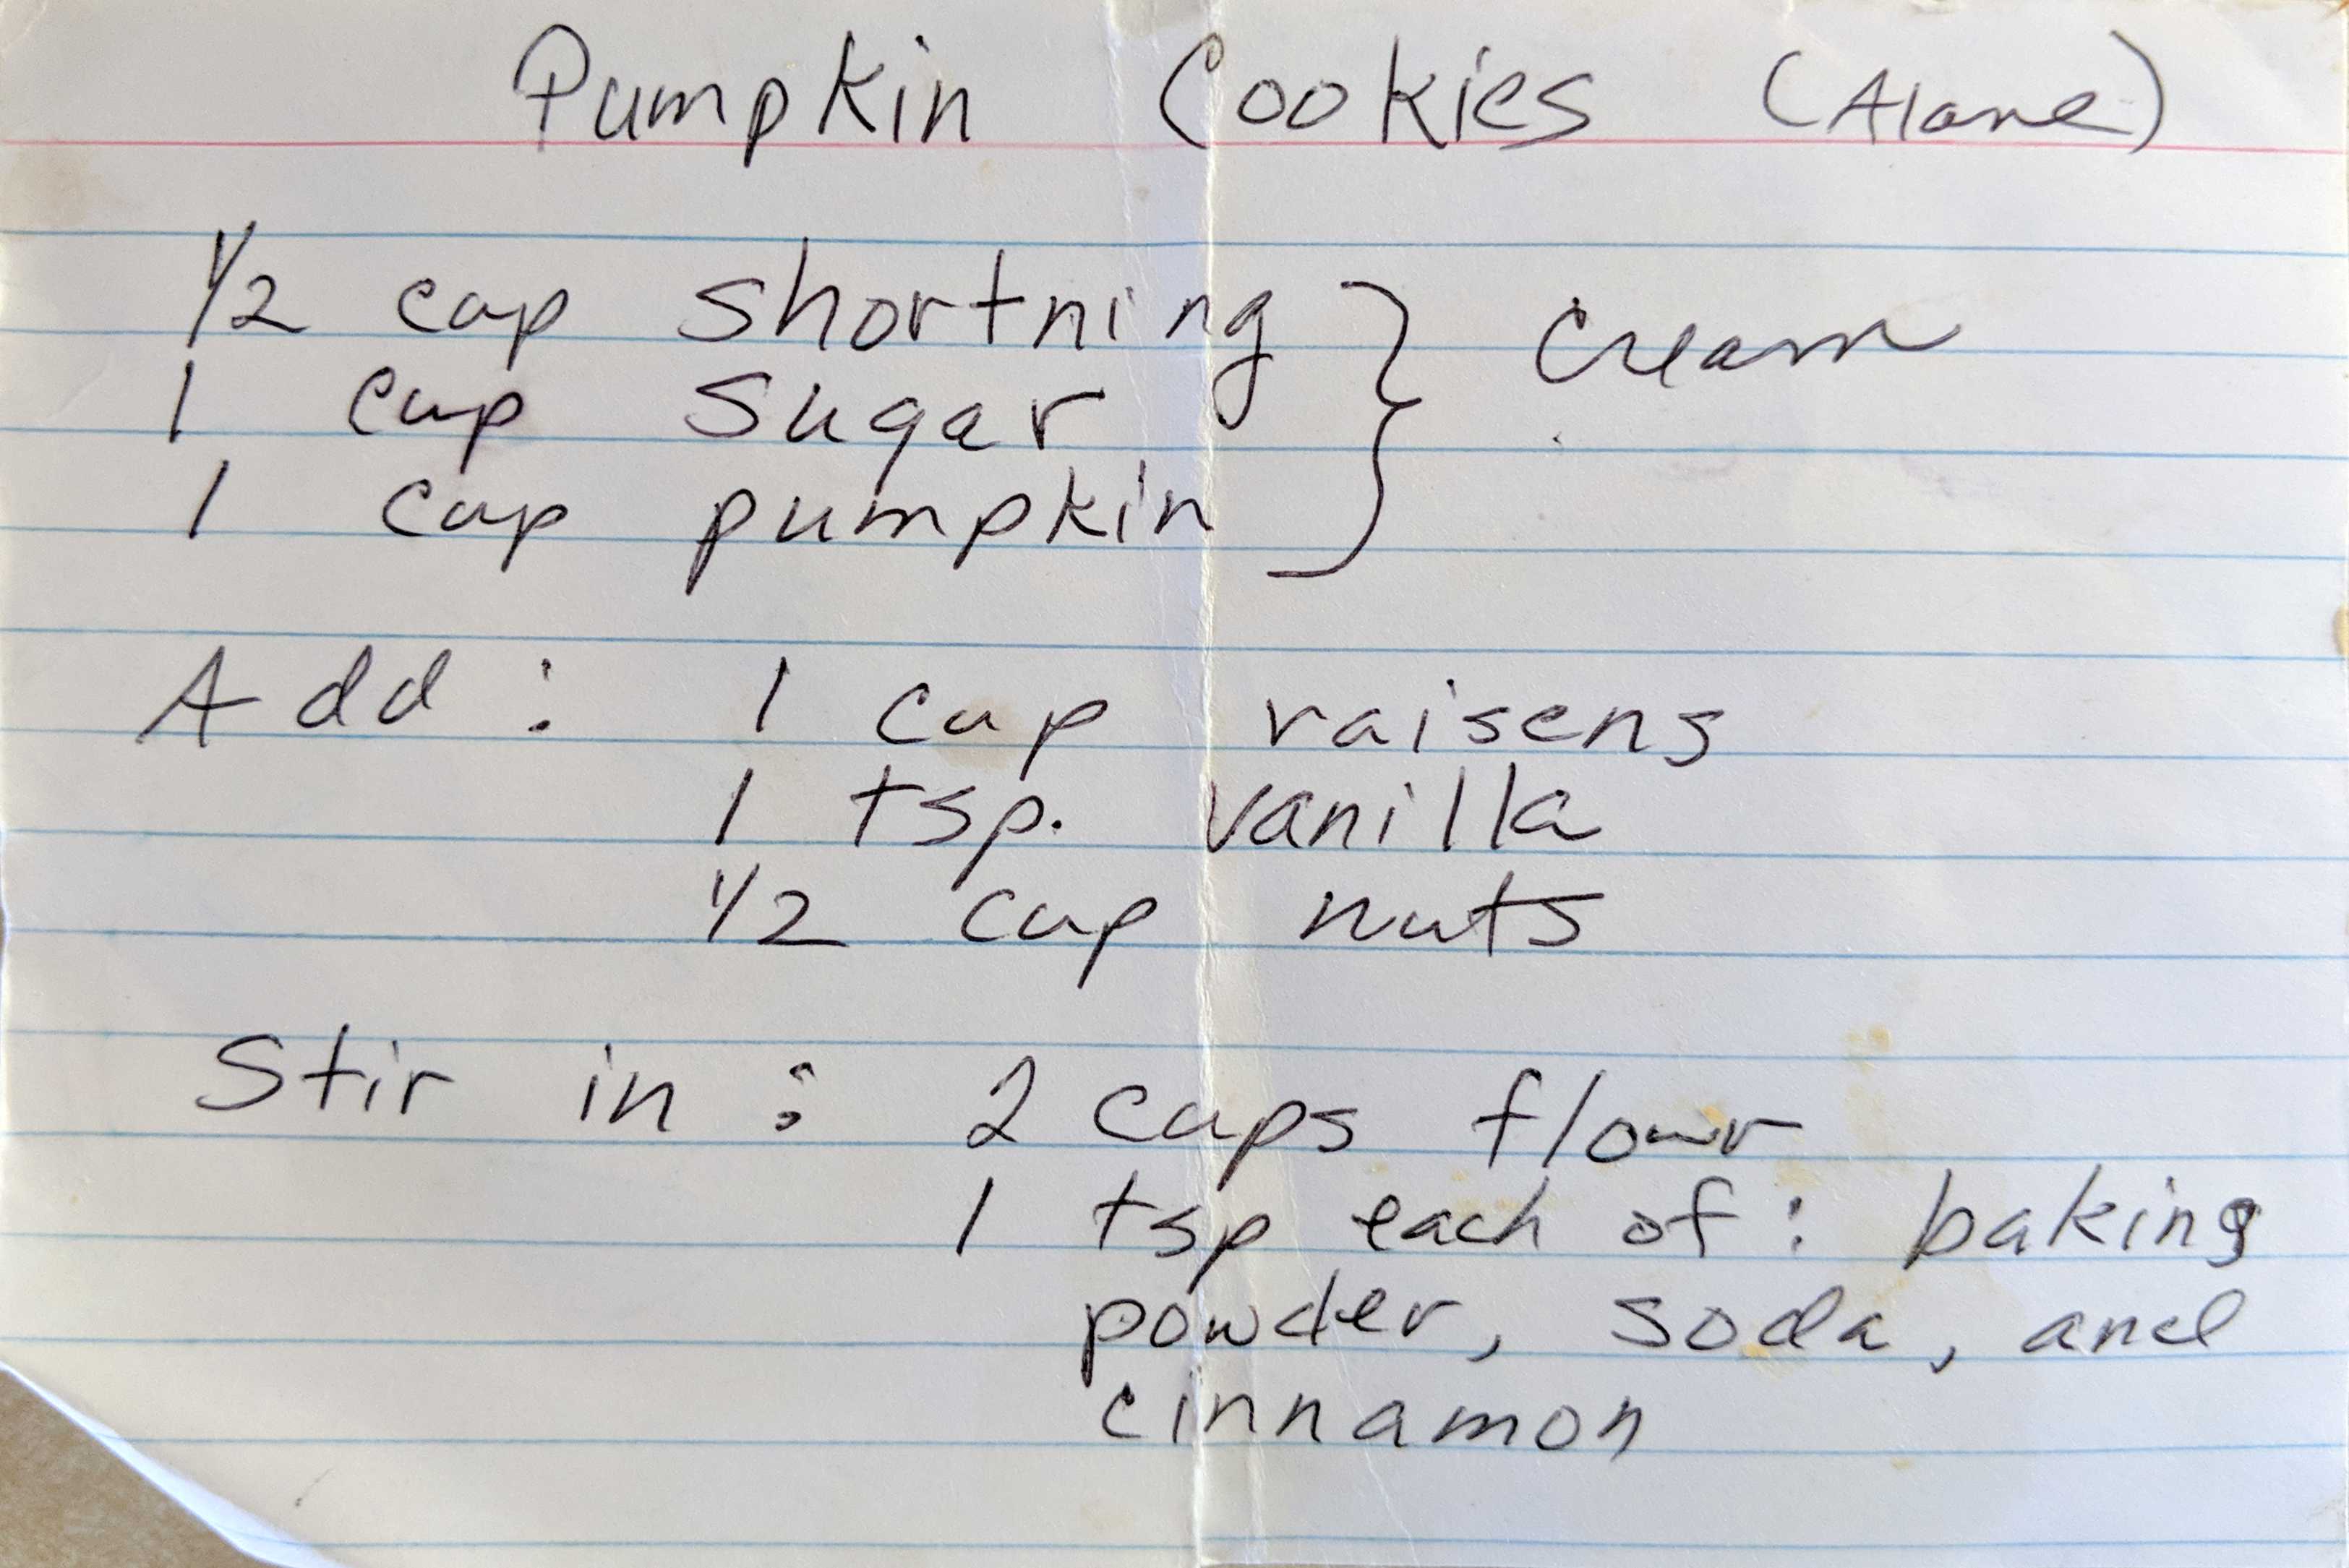 Pumpkin Cookies (Alane)
1/2 cup shortning } Cream
1 cup sugar
1 cup pumpkin
Add: 1 cup raisens
1 tsp. vanilla
1/2 cup nuts
Stir in: 2 cups flour
1 tsp each of: baking
powder, soda, and
cinnamon